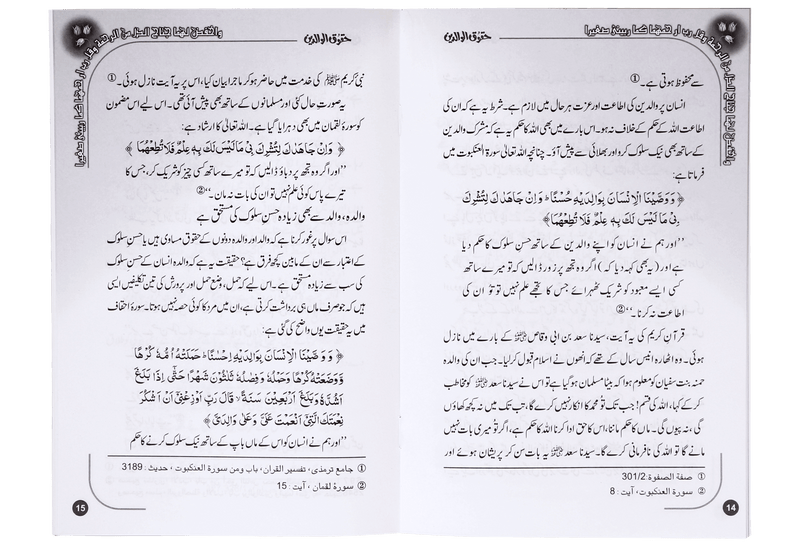 حقوق الوالدین
سے محفوظ ہوتی ہے۔ ①
انسان پر والدین کی اطاعت اور عزت ہر حال میں لازم ہے۔ شرط یہ ہے کہ ان کی
اطاعت اللہ کے حکم کے خلاف نہ ہو۔ اس بارے میں بھی اللہ کا حکم یہ ہے کہ مشرک والدین
کے ساتھ بھی نیک سلوک کرو اور بھلائی سے پیش آؤ۔ چنانچہ اللہ تعالیٰ سورۃ العنکبوت میں
فرماتا ہے:
﴿ وَوَصَّيْنَا الْاِنْسَانَ بِوَالِدَيْهِ حُسْنًا ۭ وَاِنْ جَاهَدٰكَ لِتُشْرِكَ
بِيْ مَا لَيْسَ لَكَ بِهٖ عِلْمٌ فَلَا تُطِعْهُمَا ﴾
’’اور ہم نے انسان کو اپنے والدین کے ساتھ حسن سلوک کا حکم دیا
ہے اور (یہ بھی کہہ دیا کہ) اگر وہ تجھ پر زور ڈالیں کہ تو میرے ساتھ
کسی ایسے معبود کو شریک ٹھہرائے جس کا تجھے علم نہیں تو تُو ان کی
اطاعت نہ کرنا۔‘‘ ②
قرآنِ کریم کی یہ آیت، سیدنا سعد بن ابی وقاص رضی اللہ عنہ کے بارے میں نازل
ہوئی۔ وہ اٹھارہ انیس سال کے تھے کہ انھوں نے اسلام قبول کرلیا۔ جب ان کی والدہ
حمنہ بنت سفیان کو معلوم ہوا کہ بیٹا مسلمان ہو گیا ہے تو اس نے سیدنا سعد رضی اللہ عنہ کو مخاطب
کر کے کہا، اللہ کی قسم! جب تک تو محمد کا انکار نہیں کرے گا، تب تک میں نہ کچھ کھاؤں
گی، نہ پیوں گی۔ ماں کا حکم ماننا، اس کا حق ادا کرنا اللہ کا حکم ہے، اگر تو میری بات نہیں
مانے گا تو اللہ کی نافرمانی کرے گا۔ سیدنا سعد رضی اللہ عنہ یہ بات سن کر پریشان ہوئے اور
① صفة الصفوة: 301/2
② سورة العنكبوت، آیت: 8
14
حقوق الوالدین
نبی کریم ﷺ کی خدمت میں حاضر ہو کر ماجرا بیان کیا، اس پر یہ آیت نازل ہوئی۔ ①
یہ صورتِ حال کئی اور مسلمانوں کے ساتھ بھی پیش آئی تھی۔ اس لیے اس مضمون
کو سورۂ لقمان میں بھی دہرایا گیا ہے۔ اللہ تعالیٰ کا ارشاد ہے:
﴿ وَاِنْ جَاهَدٰكَ لِتُشْرِكَ بِيْ مَا لَيْسَ لَكَ بِهٖ عِلْمٌ فَلَا تُطِعْهُمَا ﴾
’’اور اگر وہ تجھ پر دباؤ ڈالیں کہ تو میرے ساتھ کسی چیز کو شریک کر، جس کا
تیرے پاس کوئی علم نہیں تو ان کی بات نہ مان۔‘‘ ②
والدہ، والد سے بھی زیادہ حسنِ سلوک کی مستحق ہے
اس سوال پر غور کرنا ہے کہ والد اور والدہ دونوں کے حقوق مساوی ہیں یا حسنِ سلوک
کے اعتبار سے ان کے مابین کچھ فرق ہے؟ حقیقت یہ ہے کہ والدہ انسان کے حسنِ سلوک
کی سب سے زیادہ مستحق ہے۔ اس لیے کہ حمل، وضع حمل اور پرورش کی تین تکلیفیں ایسی
ہیں کہ جو صرف ماں ہی برداشت کرتی ہے، ان میں مرد کا کوئی حصہ نہیں ہوتا۔ سورۂ احقاف
میں یہ حقیقت یوں واضح کی گئی ہے:
﴿ وَوَصَّيْنَا الْاِنْسَانَ بِوَالِدَيْهِ اِحْسٰنًا ۭ حَمَلَتْهُ اُمُّهٗ كُرْهًا
وَّوَضَعَتْهُ كُرْهًا وَحَمْلُهٗ وَفِصٰلُهٗ ثَلٰثُوْنَ شَهْرًا حَتّٰى اِذَا بَلَغَ
اَشُدَّهٗ وَبَلَغَ اَرْبَعِيْنَ سَنَةً ۙ قَالَ رَبِّ اَوْزِعْنِيْ اَنْ اَشْكُرَ
نِعْمَتَكَ الَّتِيْ اَنْعَمْتَ عَلَيَّ وَعَلٰى وَالِدَيَّ ﴾
’’اور ہم نے انسان کو اس کے ماں باپ کے ساتھ نیک سلوک کرنے کا حکم
① جامع ترمذی، تفسیر القرآن، باب ومن سورة العنكبوت، حدیث: 3189.
② سورۂ لقمان، آیت: 15
15